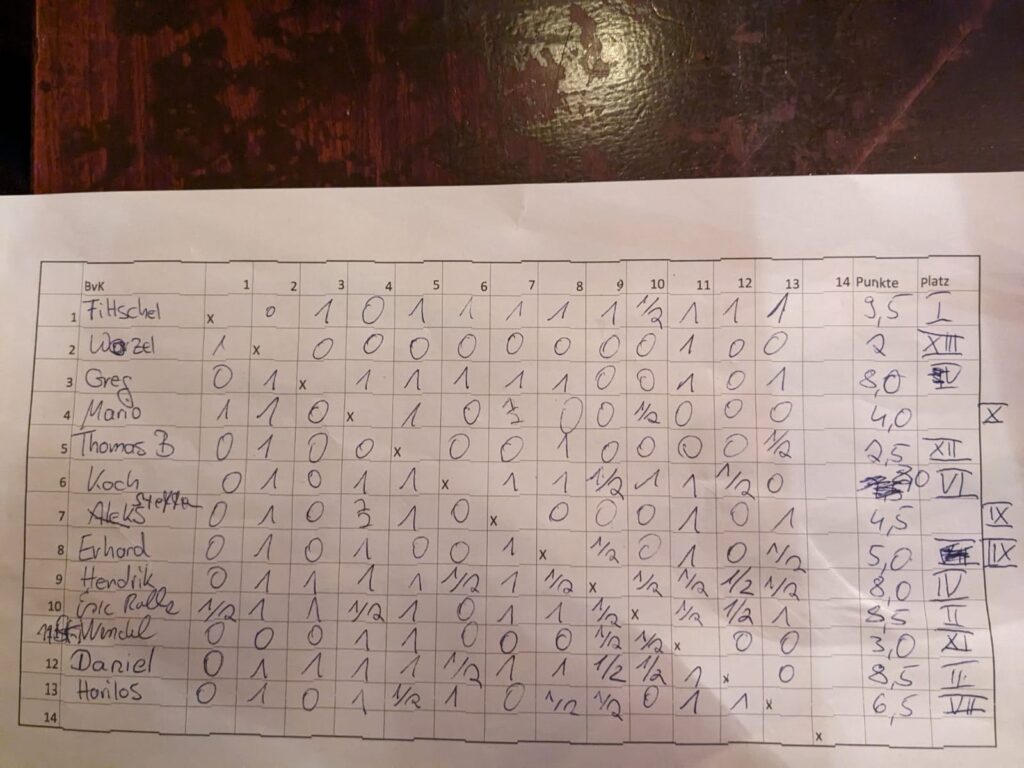 BvK 1 2 3 4 5 6 7 8 9 10 11 12 13 14 Punkte Platz
1 Fittschel x 0 1 0 1 1 1 1 1 1/2 1 1 1 9,5 I
2 Wozel 1 x 0 0 0 0 0 0 0 0 1 0 0 2 XIII
3 Greg 0 1 x 1 1 1 1 1 0 0 1 0 1 8,0 IV
4 Mario 1 1 0 x 1 0 1/2 0 0 1/2 0 0 0 4,0 X
5 Thomas B 0 1 0 0 x 0 0 1 0 0 0 0 1/2 2,5 XII
6 Koch 0 1 0 1 1 x 1 1 1/2 1 1 1/2 0 VI
7 0 1 0 1/2 1 0 x 0 0 0 1 0 1 4,5 IX
8 Erhard 0 1 0 1 0 0 1 x 1/2 0 1 0 1/2 5,0
9 Hendrik 0 1 1 1 1 1/2 1 1/2 x 1/2 1/2 1/2 1/2 8,0 IV
10 Eric Ralle 1/2 1 1 1/2 1 0 1 1 1/2 x 1/2 1/2 1 8,5 II
Windel 0 0 0 1 1 0 0 0 1/2 1/2 x 0 0 3,0 XI
12 Daniel 0 1 1 1 1 1/2 1 1 1/2 1/2 1 x 0 8,5 II
13 Horilos 0 1 0 1 1/2 1 0 1/2 1/2 0 1 1 x 6,5 VII
14 x